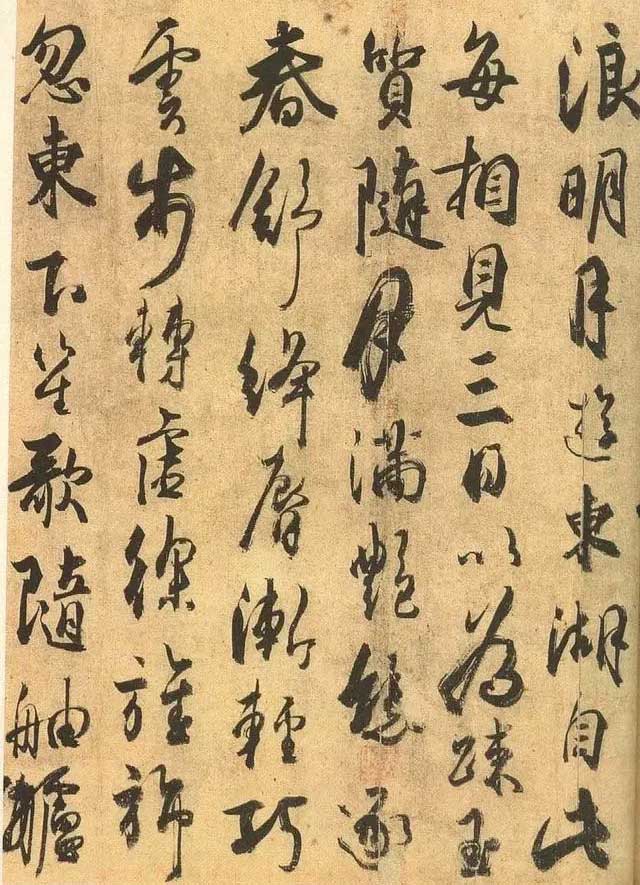 浪明月遊東湖自此
每相見三日以為踈玉
質隨月滿艶態逐
春舒絳脣漸輕巧
雲步轉虛徐旌旆
忽東下笙歌隨舳艫